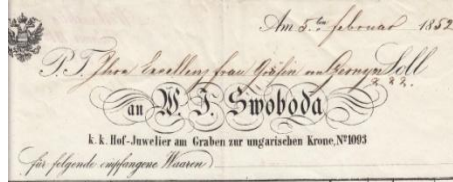 Am 5.ten februar 1852
P. T. Ihro Excellenz frau Gräfin Soll
an W. J. Swoboda
k. k. Hof-Juwelier am Graben zur ungarischen Krone, Nº1093
für folgende empfangene Waaren